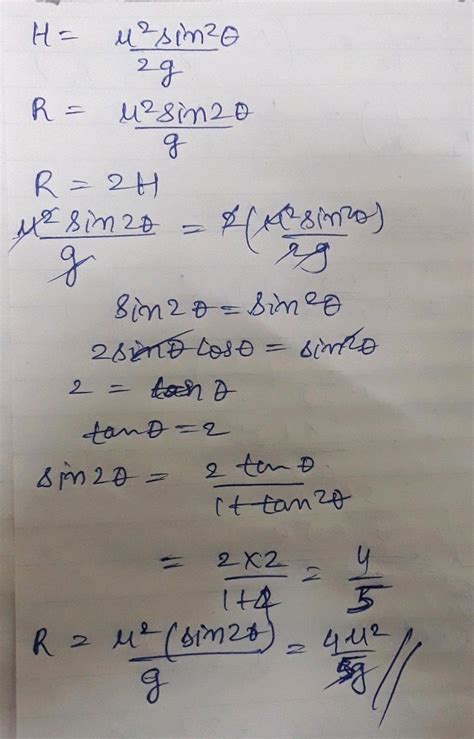 H = u²sin²θ/2g
R = u²sin2θ/g
R = 2H
u²sin2θ/g = 2(u²sin²θ/2g)
sin2θ = sin²θ
2sinθ cosθ = sin²θ
2 = tanθ
tanθ = 2
sin2θ = 2tanθ/1+tan²θ
= 2×2/1+4 = 4/5
R = u²(sin2θ)/g = 4u²/5g //